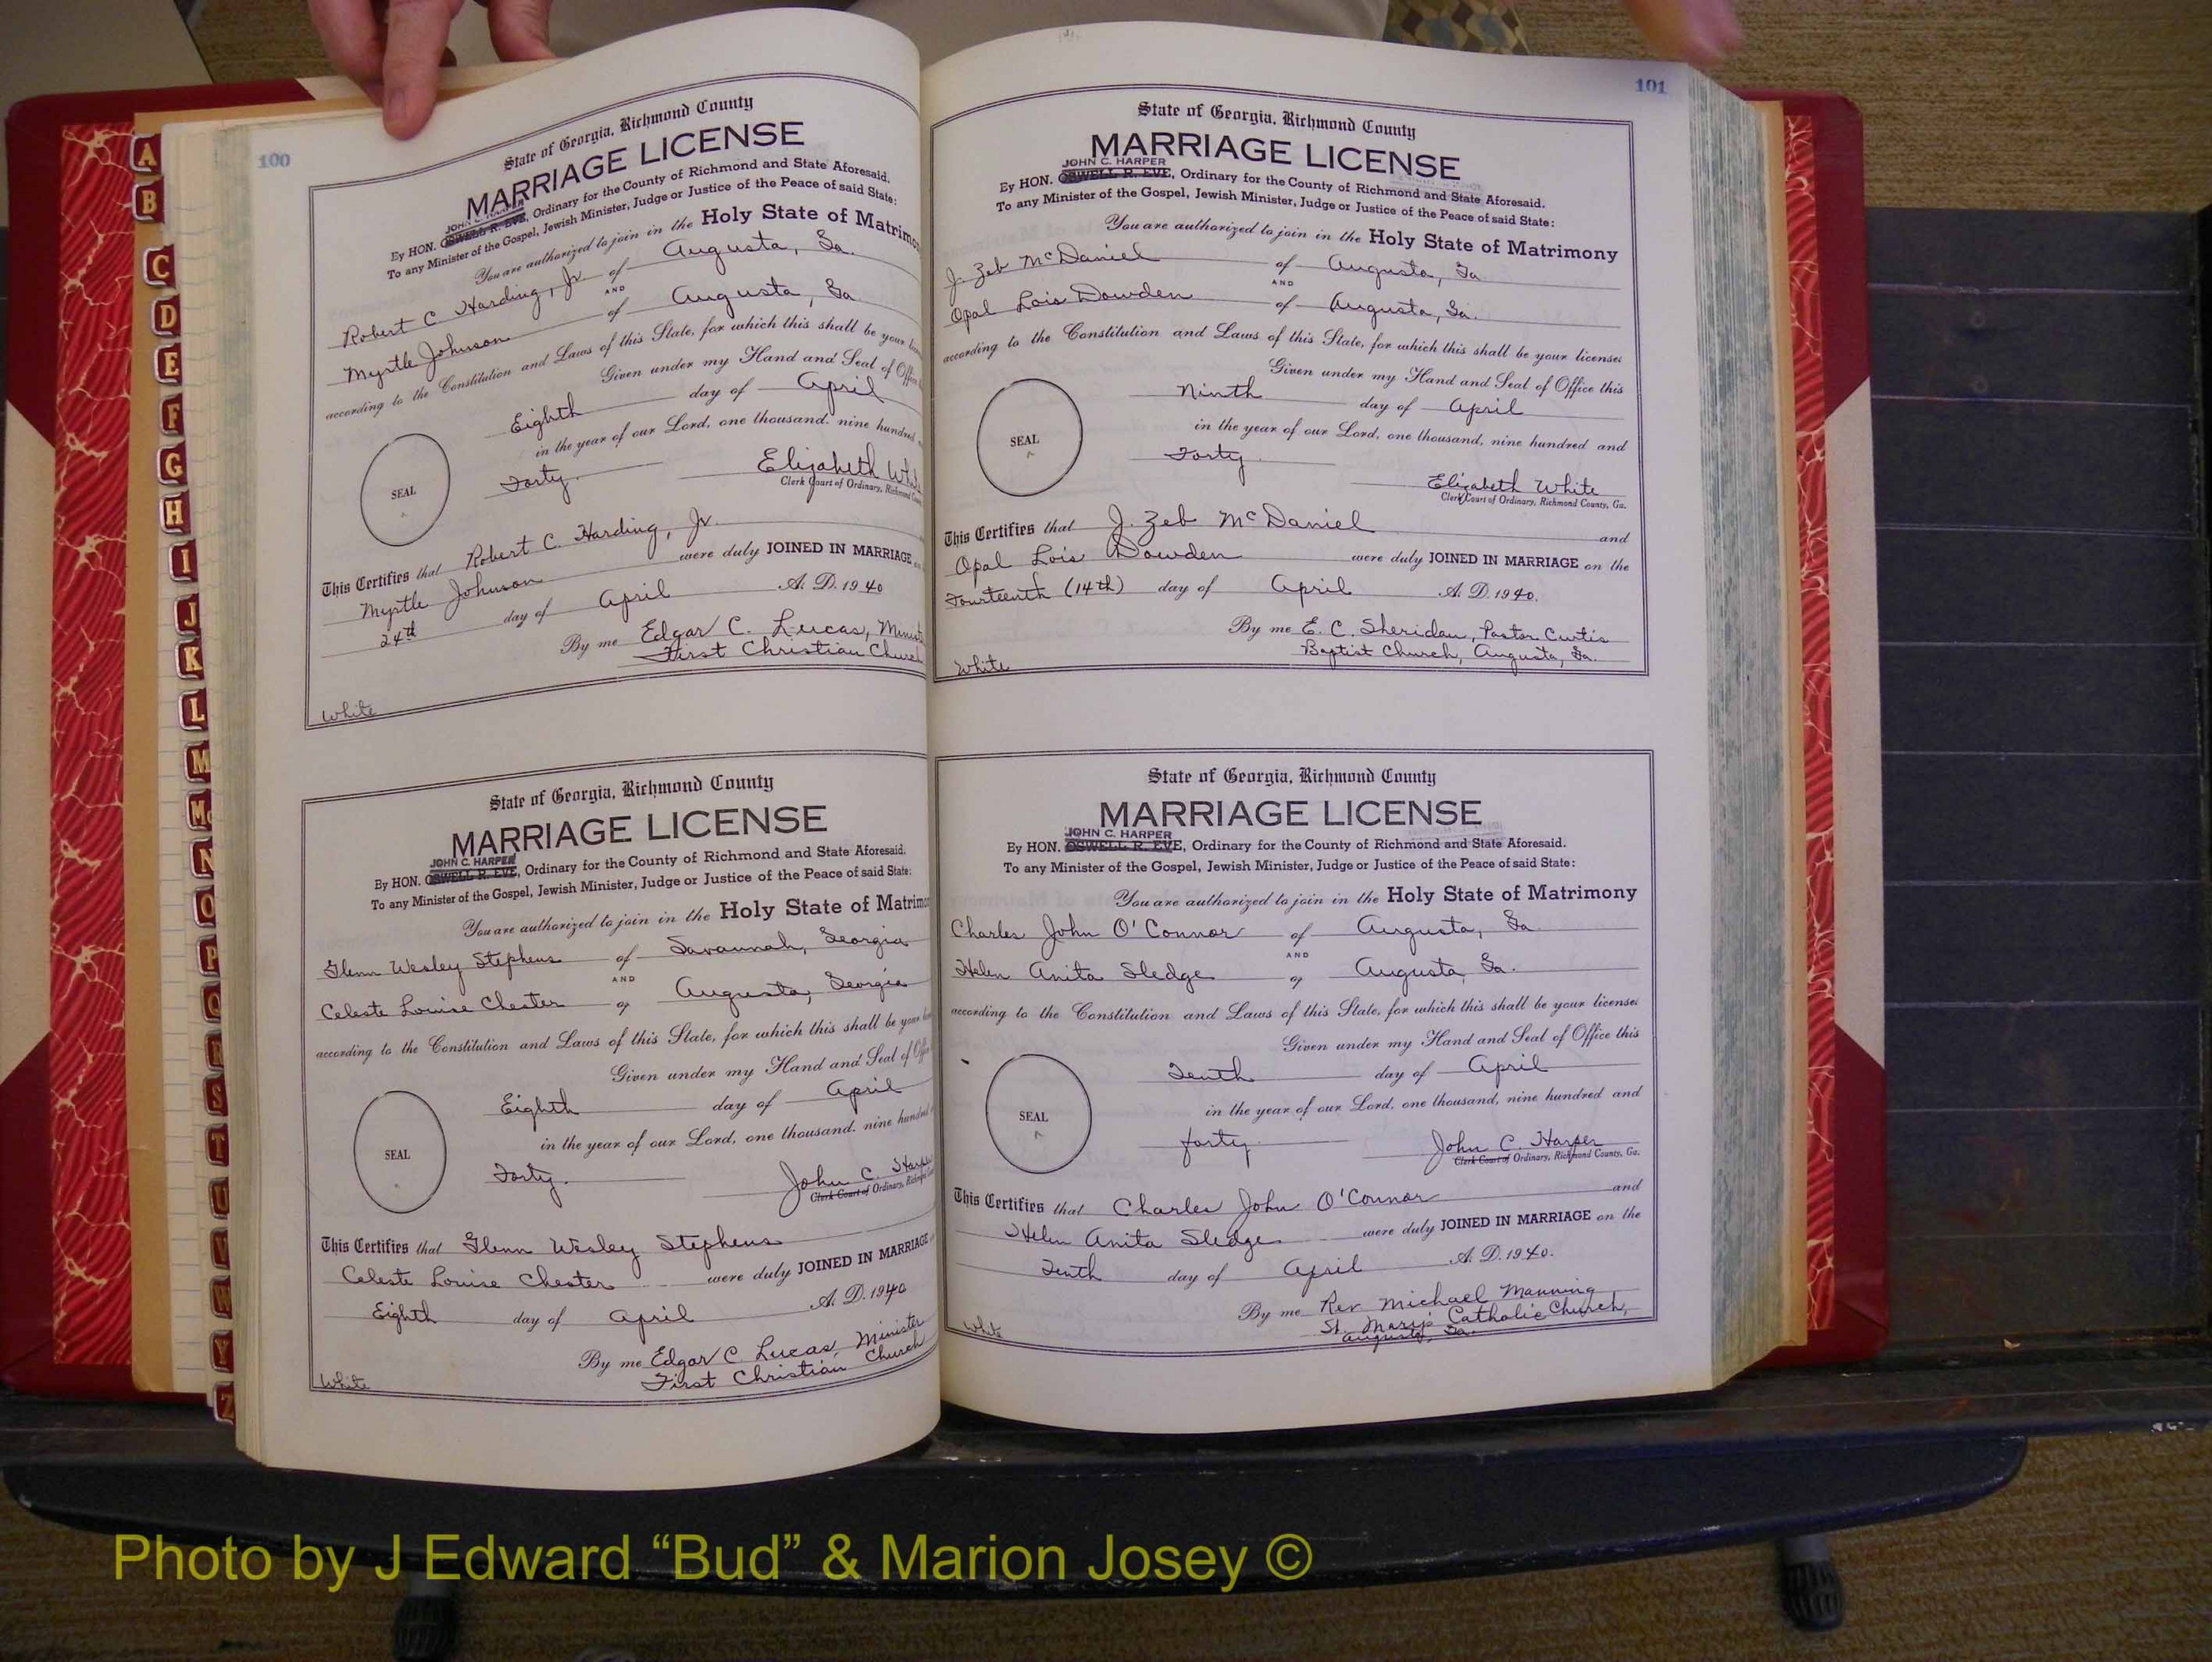 100
State of Georgia, Richmond County
MARRIAGE LICENSE
JOHN C. HARPER
By HON. OSWELL R. EVE, Ordinary for the County of Richmond and State Aforesaid.
To any Minister of the Gospel, Jewish Minister, Judge or Justice of the Peace of said State:
You are authorized to join in the Holy State of Matrimo
Robert C Harding, Jr of Augusta, Ga.
AND
Myrtle Johnson of Augusta, Ga
according to the Constitution and Laws of this State, for which this shall be your
Given under my Hand and Seal of Offi
Eighth day of April
in the year of our Lord, one thousand, nine hundred
Forty. Elizabeth Whi
Clerk Court of Ordinary, Richmond
SEAL
This Certifies that Robert C. Harding, Jr.
Myrtle Johnson were duly JOINED IN MARRIAGE
24th day of April A. D. 1940
By me Edgar C. Lucas, Minist
First Christian Church
White
State of Georgia, Richmond County
MARRIAGE LICENSE
JOHN C. HARPER
By HON. OSWELL R. EVE, Ordinary for the County of Richmond and State Aforesaid.
To any Minister of the Gospel, Jewish Minister, Judge or Justice of the Peace of said State:
You are authorized to join in the Holy State of Matrimo
Glenn Wesley Stephens of Savannah, Georgia
AND
Celeste Louise Chester of Augusta, Georgia
according to the Constitution and Laws of this State, for which this shall be your
Given under my Hand and Seal of Offi
Eighth day of April
in the year of our Lord, one thousand, nine hundred
Forty. John C. Harpe
Clerk Court of Ordinary, Richmond
SEAL
This Certifies that Glenn Wesley Stephens
Celeste Louise Chester were duly JOINED IN MARRIAGE
Eighth day of April A. D. 1940
By me Edgar C Lucas, Minister
First Christian Church
White
101
State of Georgia, Richmond County
MARRIAGE LICENSE
JOHN C. HARPER
By HON. OSWELL R. EVE, Ordinary for the County of Richmond and State Aforesaid.
To any Minister of the Gospel, Jewish Minister, Judge or Justice of the Peace of said State:
You are authorized to join in the Holy State of Matrimony
J. Zeb McDaniel of Augusta, Ga
AND
Opal Lois Dowden of Augusta, Ga.
according to the Constitution and Laws of this State, for which this shall be your license:
Given under my Hand and Seal of Office this
Ninth day of April
in the year of our Lord, one thousand, nine hundred and
Forty. Elizabeth White
Clerk Court of Ordinary, Richmond County, Ga.
SEAL
This Certifies that J. Zeb McDaniel and
Opal Lois Dowden were duly JOINED IN MARRIAGE on the
Fourteenth (14th) day of April A. D. 1940.
By me E. C. Sheridan, Pastor Curtis
Baptist Church, Augusta, Ga.
White
State of Georgia, Richmond County
MARRIAGE LICENSE
JOHN C. HARPER
By HON. OSWELL R. EVE, Ordinary for the County of Richmond and State Aforesaid.
To any Minister of the Gospel, Jewish Minister, Judge or Justice of the Peace of said State:
You are authorized to join in the Holy State of Matrimony
Charles John O'Connor of Augusta, Ga
AND
Helen Anita Sledge of Augusta, Ga.
according to the Constitution and Laws of this State, for which this shall be your license:
Given under my Hand and Seal of Office this
Tenth day of April
in the year of our Lord, one thousand, nine hundred and
forty. John C. Harper
Clerk Court of Ordinary, Richmond County, Ga.
SEAL
This Certifies that Charles John O'Connor and
Helen Anita Sledge were duly JOINED IN MARRIAGE on the
Tenth day of April A. D. 1940.
By me Rev Michael Manning
St. Mary's Catholic Church,
Augusta, Ga.
White
A
B
C
D
E
F
G
H
I
J
K
L
M
Mc
N
O
P
Q
R
S
T
U
V
W
Y
Z
Photo by J Edward “Bud” & Marion Josey ©